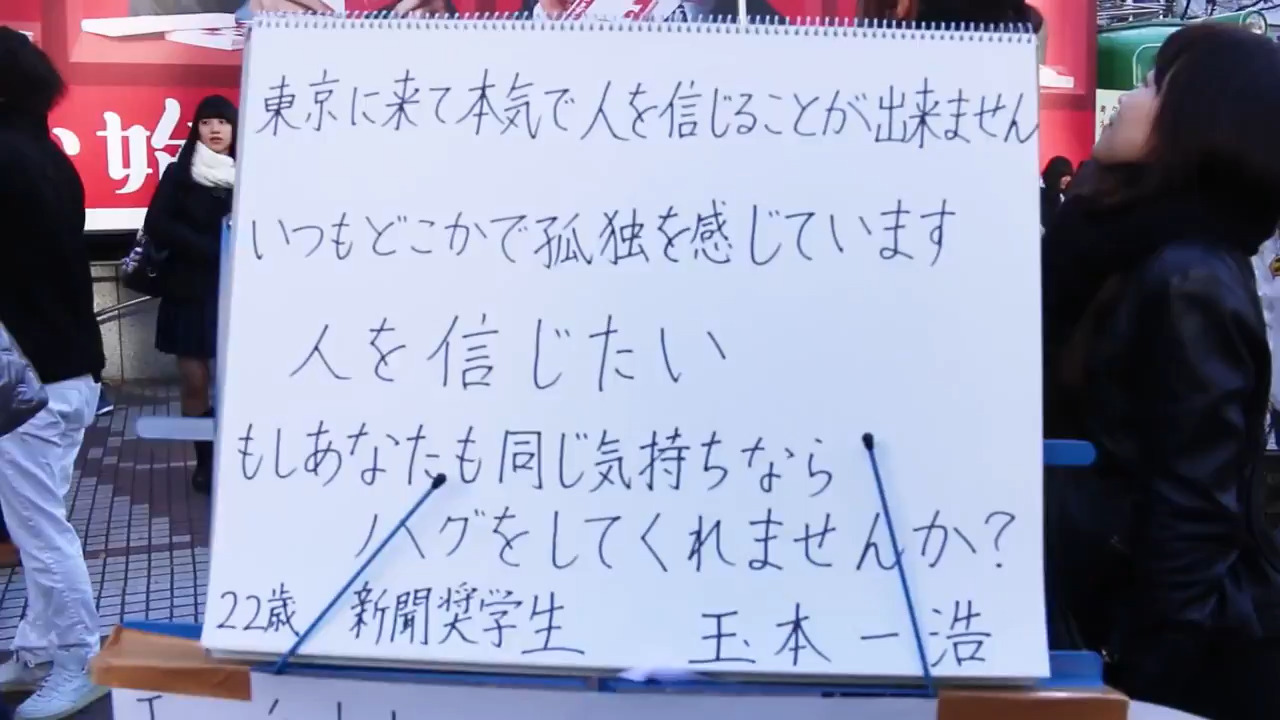 東京に来て本気で人を信じることが出来ません
いつもどこかで孤独を感じています
人を信じたい
もしあなたも同じ気持ちなら
ハグをしてくれませんか?
22歳 新聞奨学生 玉本一浩
始